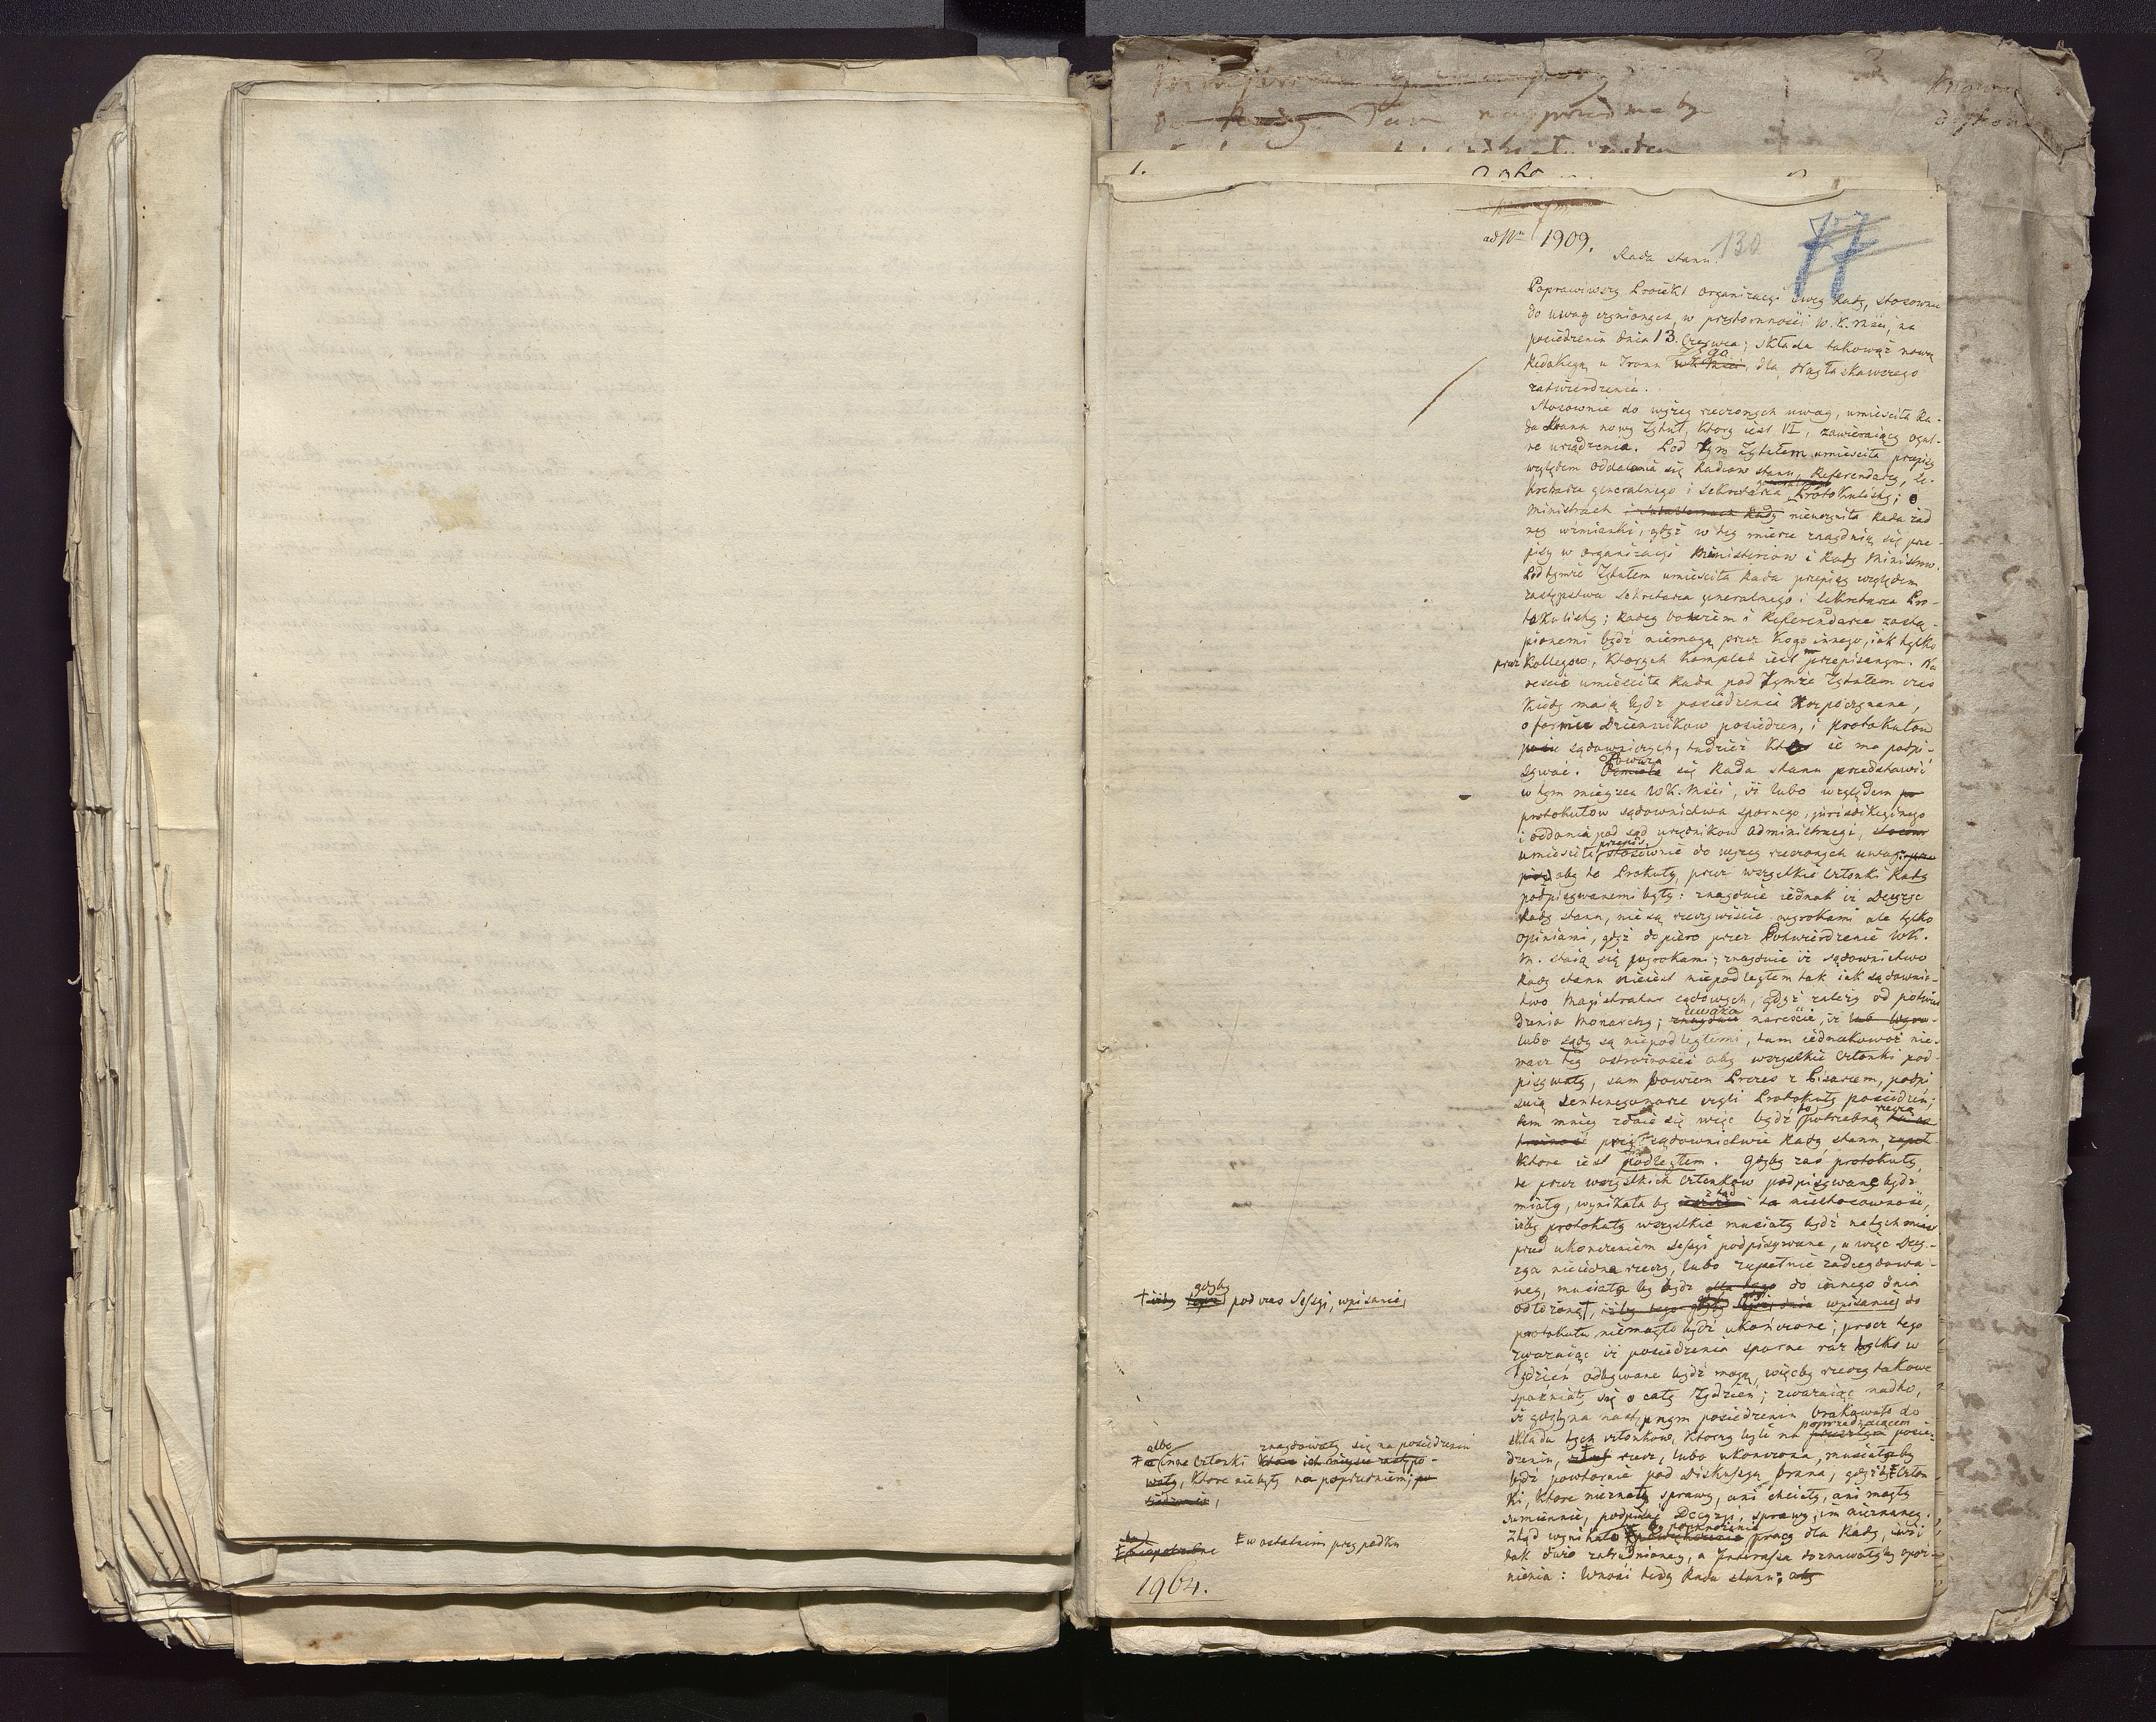 do Rady Pan naypried ma by
1.
ad Nrm 1909.
130
77
Rada stanu.
Poprawiwszy Proiekt organizacyi swey Rady, stosownie
do uwag czynionych, w przytomności W. K. Mści, na
posiedzeniu dnia 13. Czerwca; składa takowąż nową
Redakcyą u Tronu Jego dla Nayłaskawszego
zatwierdzenia.
Stosownie do wyżey rzeczonych uwag, umieściła Ra-
da Stanu nowy Tytuł, który iest VI, zawieraiący ogul-
ne urządzenia. Pod tym Tytułem umieściła przepisy
względem oddalania się Radcow stanu, Referendarzy, Se-
kretarza generalnego i Sekretarza Protokulisty; o
Ministrach i Rady nieuczyniła Rada żad
ney wzmianki, gdyż w tey mierze znaydują się prze-
pisy w organizacyi Ministeriów i Rady Ministrow.
Pod tymże Tytułem umieściła Rada przepisy względem
zastępstwa Sekretarza generalnego i Sekretarza Pro-
tokulisty; Radcy bowiem i Referendarze zastą-
pionemi bydź niemogą przez kogo innego, iak tylko
przez Kollegow, których komplet iest przepisanym. Na
reście umieściła Rada pod tymże Tytułem czas
kiedy maią bydź posiedzenia rozpoczynane,
o formie Dziennikow posiedzeń, i protokułow
sądowniczych, tudzież kto ie ma podpi-
sywać. Odważa się Rada stanu przedstawić
w tym mieyscu W K. Mści, iż lubo względem po
protokułow sądownictwa spornego, jurisdikcyinego
i oddania pod sąd urzędnikow administracyi, stosow
umieściła przepis stosownie do wyżey rzeczonych uwag
aby te Protokuły, przez wszystkie członki Rady
podpisywanemi były: znayduie iednak iż Decyzye
Rady stanu, nie są rzeczywiście wyrokami ale tylko
opiniami, gdyż dopiero przez Potwierdzenie W K.
M. staią się wyrokami; znayduie iż sądownictwo
Rady stanu nieiest niepodległem tak iak sądownic-
two Magistratur sądowych, gdyż zależy od potwier
dzenia Monarchy; uważa nareście, iż
lubo sądy są niepodległemi, tam iednakowoż nie-
masz tey ostrożności aby wszystkie członki pod-
pisywały, sam bowiem Prezes z Pisarzem, podpi
suią Sentencyonarze czyli Protokuły posiedzeń;
tem mniey zdaie się więc bydź to potrzebną rzeczą
przy sądownictwie Rady stanu,
które iest podległem. Gdyby zaś protokuły,
te przez wszystkich członków podpisywane bydź
miały, wynikała by ztąd ta niestosowność,
iżby protokuły wszystkie musiały bydź natychmiast
przed ukończeniem Sessyi podpisywane, a więc Decy-
zya nieiedna rzeczy, lubo zupełnie zadecydowa-
ney, musiała by bydź dla tego do innego dnia
odłożoną, wpisanie do
† gdyby podczas Sessyi, wpisanie
protokułu niemogło bydź ukończone; procz tego
zważaiąc iż posiedzenia sporne raz tylko w
Tydzień odbywane bydź mogą, więcby rzeczy takowe
spoźniały się o cały Tydzień; zważaiąc nadto,
iż gdyby na następnym posiedzeniu brakowało do
składu tych członkow, którzy byli na poprzedzaiącem posie-
dzeniu, rzecz, lubo ukończona, musiałaby
albo
inne członki znaydowały się na posiedzeniu
które ich mieysce zastępo-
wały, które nie były na poprzedniem
bydź powtornie pod diskussyą brana, gdyżby człon
ki, które nieznały sprawy, ani chciały, ani mogły
sumiennie, podpisać Decyzyi, sprawy im nieznaney.
Ztąd wynikało by pomnożenie pracy dla Rady, i bez
tak dużo zatrudnioney, a Interessa doznawałyby opoź-
nienia: Wnosi tedy Rada stanu; aby
w ostatnim przypadku
1964.